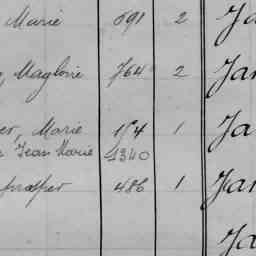 Marie 691 2 Ja
Magloire 764 2 Jan
er, Marie 154 1 Ja
Jean Marie 1340
prosper 486 1 Jan
Ja